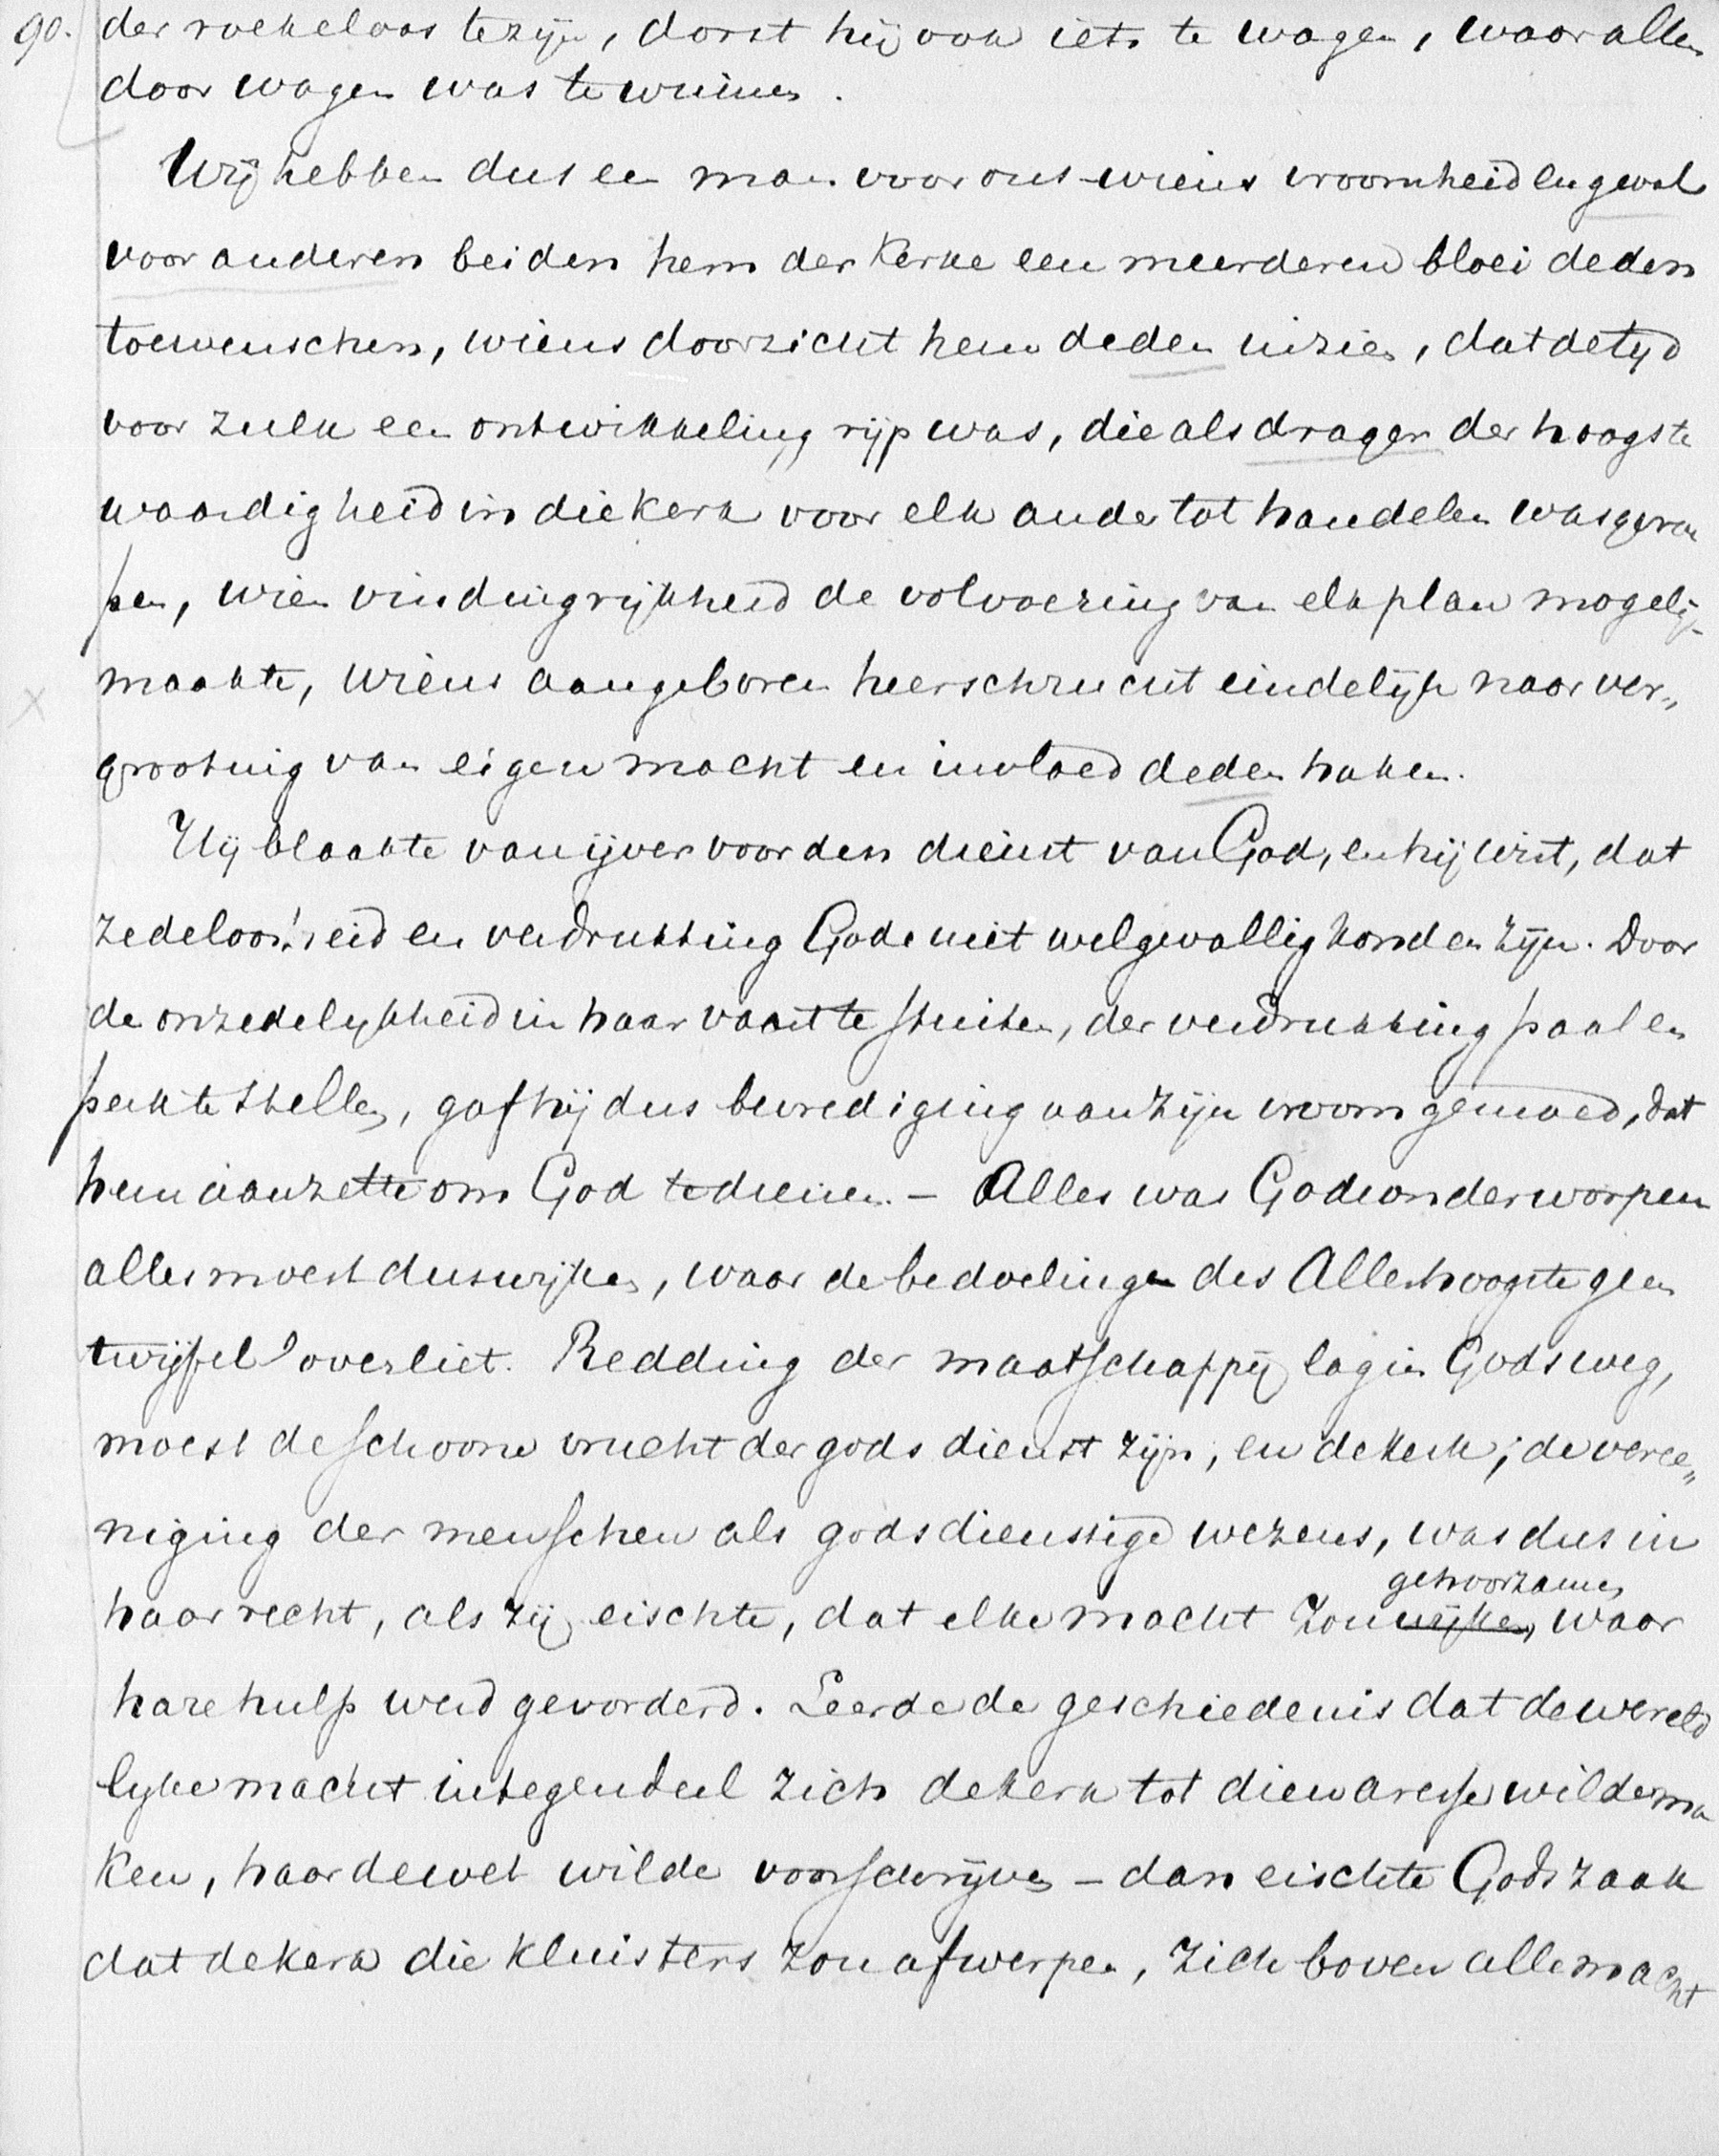 90. der roekeloos te zijn, dorst hij ook iets te wagen, waar alles
door wagen was te winnen.
Wij hebben dus een man voor ons wiens vroomheid en gevoel
voor anderen beiden hem der Kerke een meerderen bloei deden
toewenschen, wiens doorzicht hem deden inzien, dat de tijd
voor zulk een ontwikkeling rijp was, die als drager der hoogste
waardigheid in die kerk voor elk ander tot handelen was geroe
pen, wien vindingrijkheid de volvoering van elk plan mogelijk
maakte, wiens aangeboren heerschzucht eindelijk naar ver„
grooting van eigen macht en invloed deden haken.
Hij blaakte van ijver voor den dienst van God, en hij wist, dat
zedeloosheid en verdrukking Gode niet welgevallig konden zijn. Door
de onzedelijkheid in haar vaart te stuiten, der verdrukking paal en
perk te stellen, gaf hij dus bevrediging aan zijn vroom gemoed, dat
hem aanzette om God te dienen. – Alles was Gode onderworpen
alles moest dus wijken, waar de bedoelingen des Allerhoogste geen
twijfel overliet. Redding der maatschappij lag in Gods weg,
moest de schoone vrucht der godsdienst zijn, en de kerk, de veree„
niging der menschen als godsdienstige wezens, was dus in
gehoorzamen
haar recht, als zij eischte, dat elke macht zou wijken, waar
hare hulp werd gevorderd. Leerde de geschiedenis dat de wereld
lijke macht integendeel zich de kerk tot dienaresse wilde ma
ken, haar de wet wilde voorschrijven – dan eischte Gods zaak
dat de kerk die kluisters zou afwerpen, zich boven alle macht